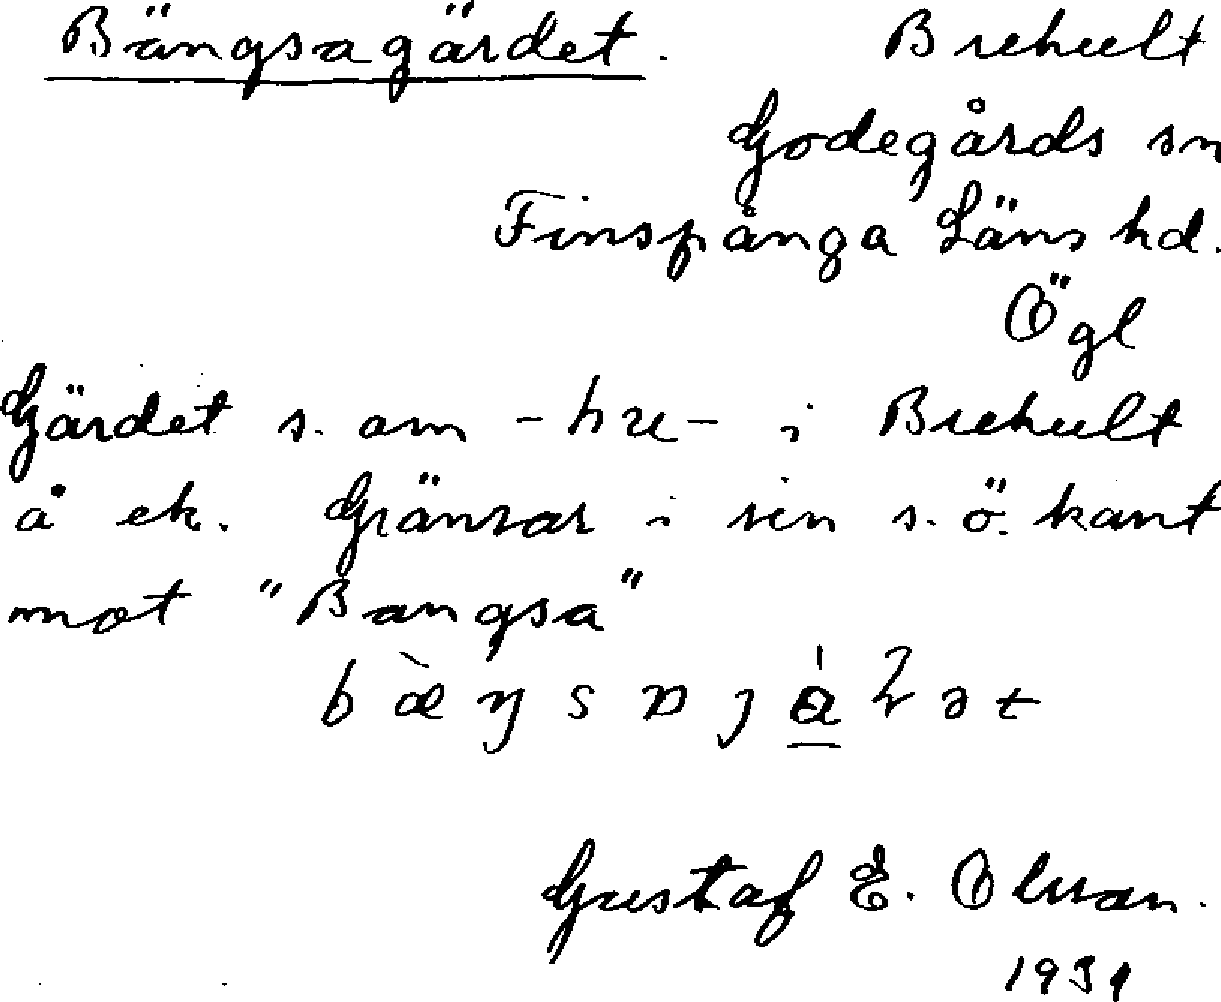 Bängsagärdet. Brehult
Godegårds sn
Finspånga Läns hd.
Ögl
Gärdet s. om - hu - i Brehult
å ek. Gränsar i sin s.ö. kant
mot "Bangsa"
Gustaf E. Olsson.